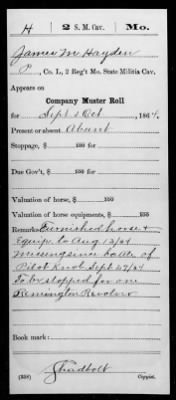 H 2 S. M. Cav. Mo.
James M Hayden
P, Co. L, 2 Reg't Mo. State Militia Cav.
Appears on
Company Muster Roll
for Sept & Oct, 1864.
Present or absent Absent
Stoppage, $ 100 for
Due Gov't, $ 100 for
Valuation of horse, $ 100
Valuation of horse equipments, $ 100
Remarks: Furnished horse &
Equip. to Aug 13/64
Missing since battle of
Pilot Knob Sept 27/64
To be stopped for one
Remington Revolver
Book mark:
(358) Copyist.